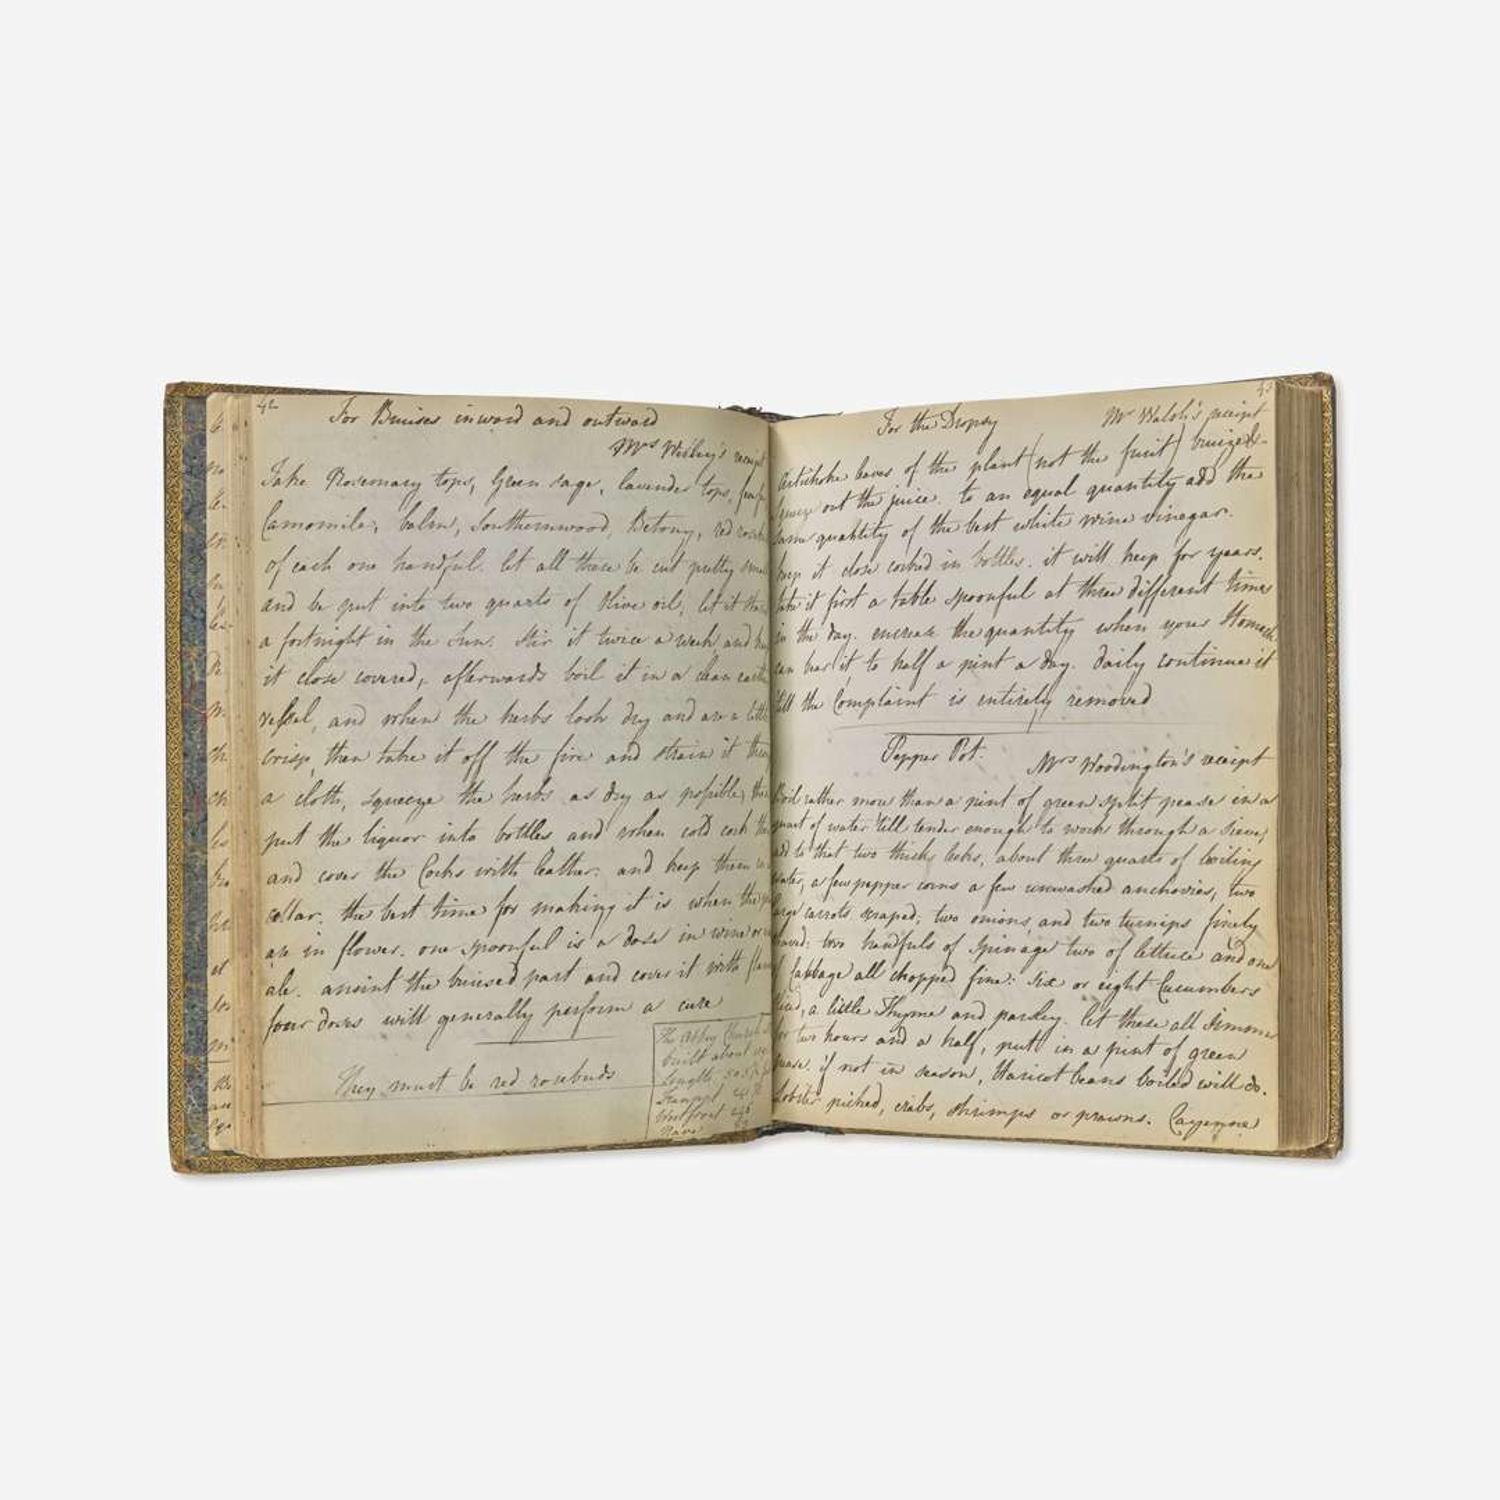 42
For Bruises inward and outward
Mrs
Take Rosemary tops, Green sage, lavender tops,
Camomile, balm, Southernwood, Betony, red
of each one handful. let all these be cut pretty
and be put into two quarts of Olive oil, let it
a fortnight in the Sun. Stir it twice a week and
it close covered, afterwards boil it in a clean
vessel, and when the herbs look dry and are a
crisp, then take it off the fire and strain it
a cloth, squeeze the herbs as dry as possible,
put the liquor into bottles and when cold cork
and cover the Corks with leather: and keep them
cellar. the best time for making it is when the
are in flower. one spoonful is a dose in wine or
ale. anoint the bruised part and cover it with
four doses will generally perform a cure
They must be red rosebuds
The Abbey Church
built about
Length
West front
Nave
For the Dropsy
Mr Walsh's receipt
Artichoke leaves of the plant (not the fruit) bruized
out the juice. to an equal quantity add the
same quantity of the best white wine vinegar.
keep it close corked in bottles. it will keep for years.
take it first a table spoonful at three different times
in the day. encrease the quantity when your Stomach
can bear it to half a pint a day. daily continue it
till the Complaint is entirely removed
Pepper Pot.
Mrs Woodington's receipt
Boil rather more than a pint of green split pease in a
quart of water till tender enough to work through a sieve,
add to that two thick leeks, about three quarts of boiling
water, a few pepper corns a few unwashed anchovies, two
large carrots scraped, two onions, and two turnips finely
two handfuls of Spinage two of lettuce and one
of Cabbage all chopped fine: six or eight Cucumbers
a little Thyme and parsley. let these all simmer
for two hours and a half, put in a pint of green
pease. if not in season, Haricot beans boiled will do.
Lobster picked, crabs, shrimps or prawns.